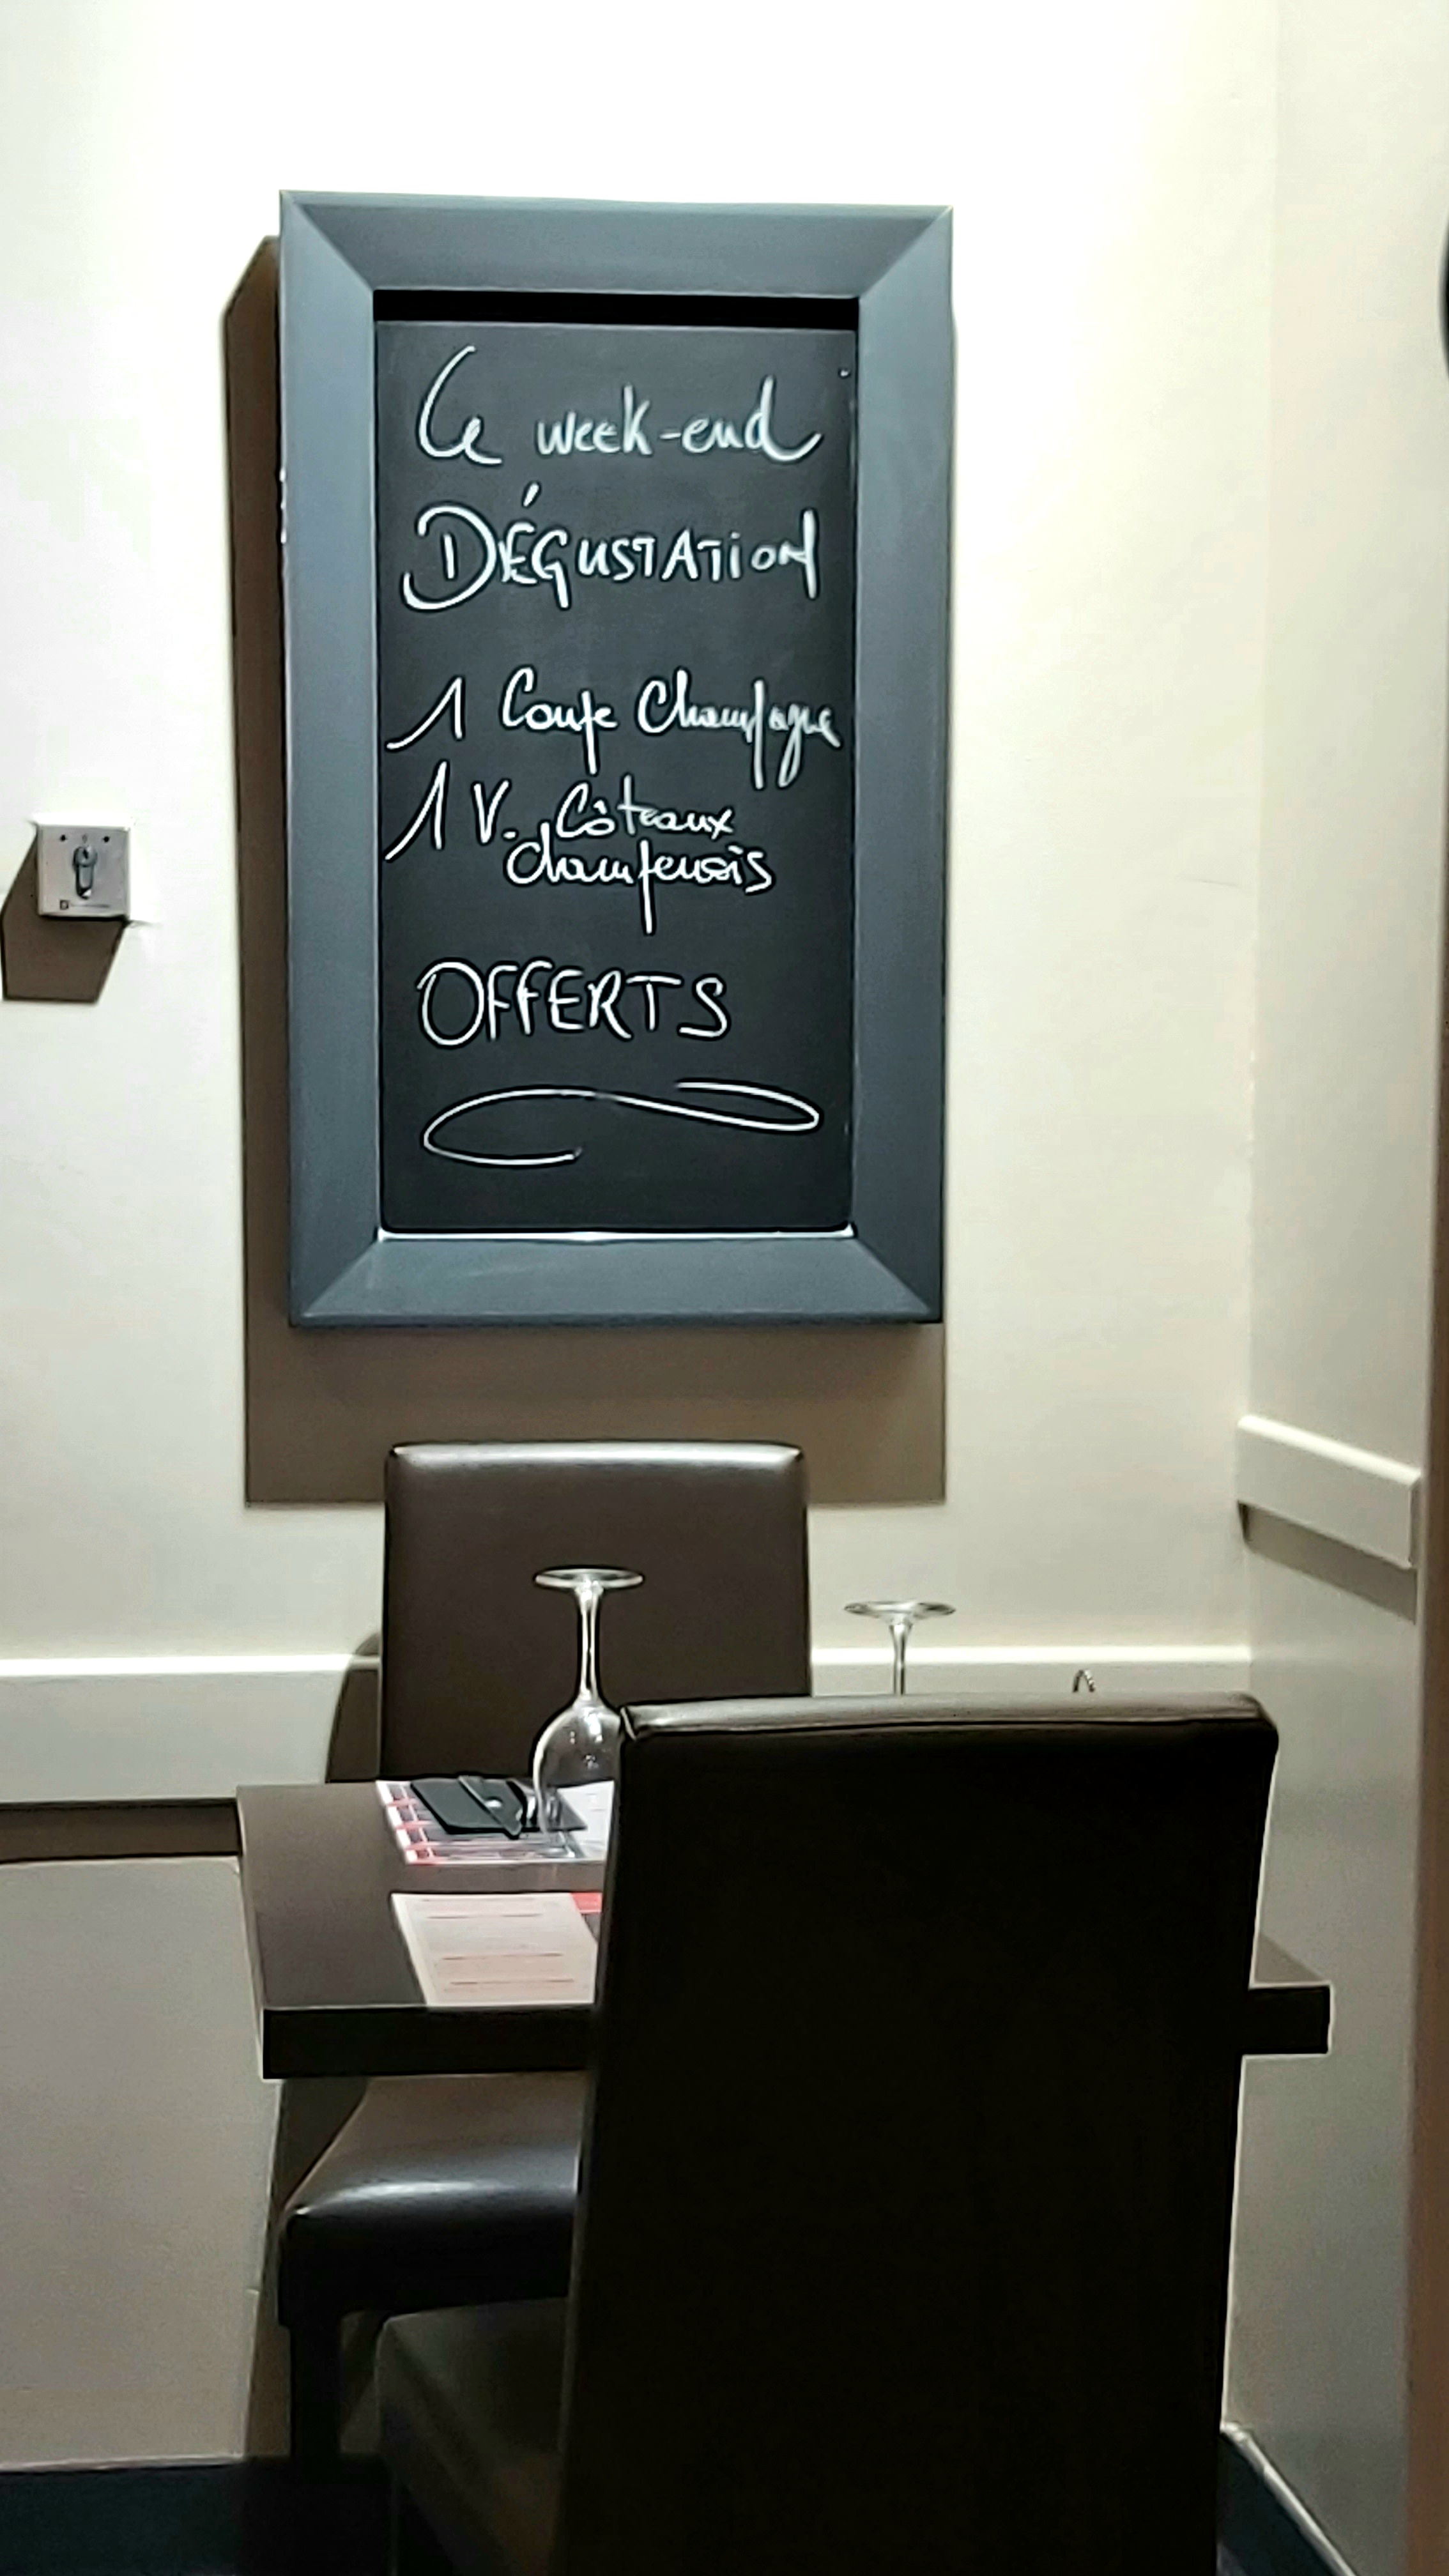 Le week-end
DÉGUSTATION
1 Coupe Champagne
1 V. Côteaux
champenois
OFFERTS